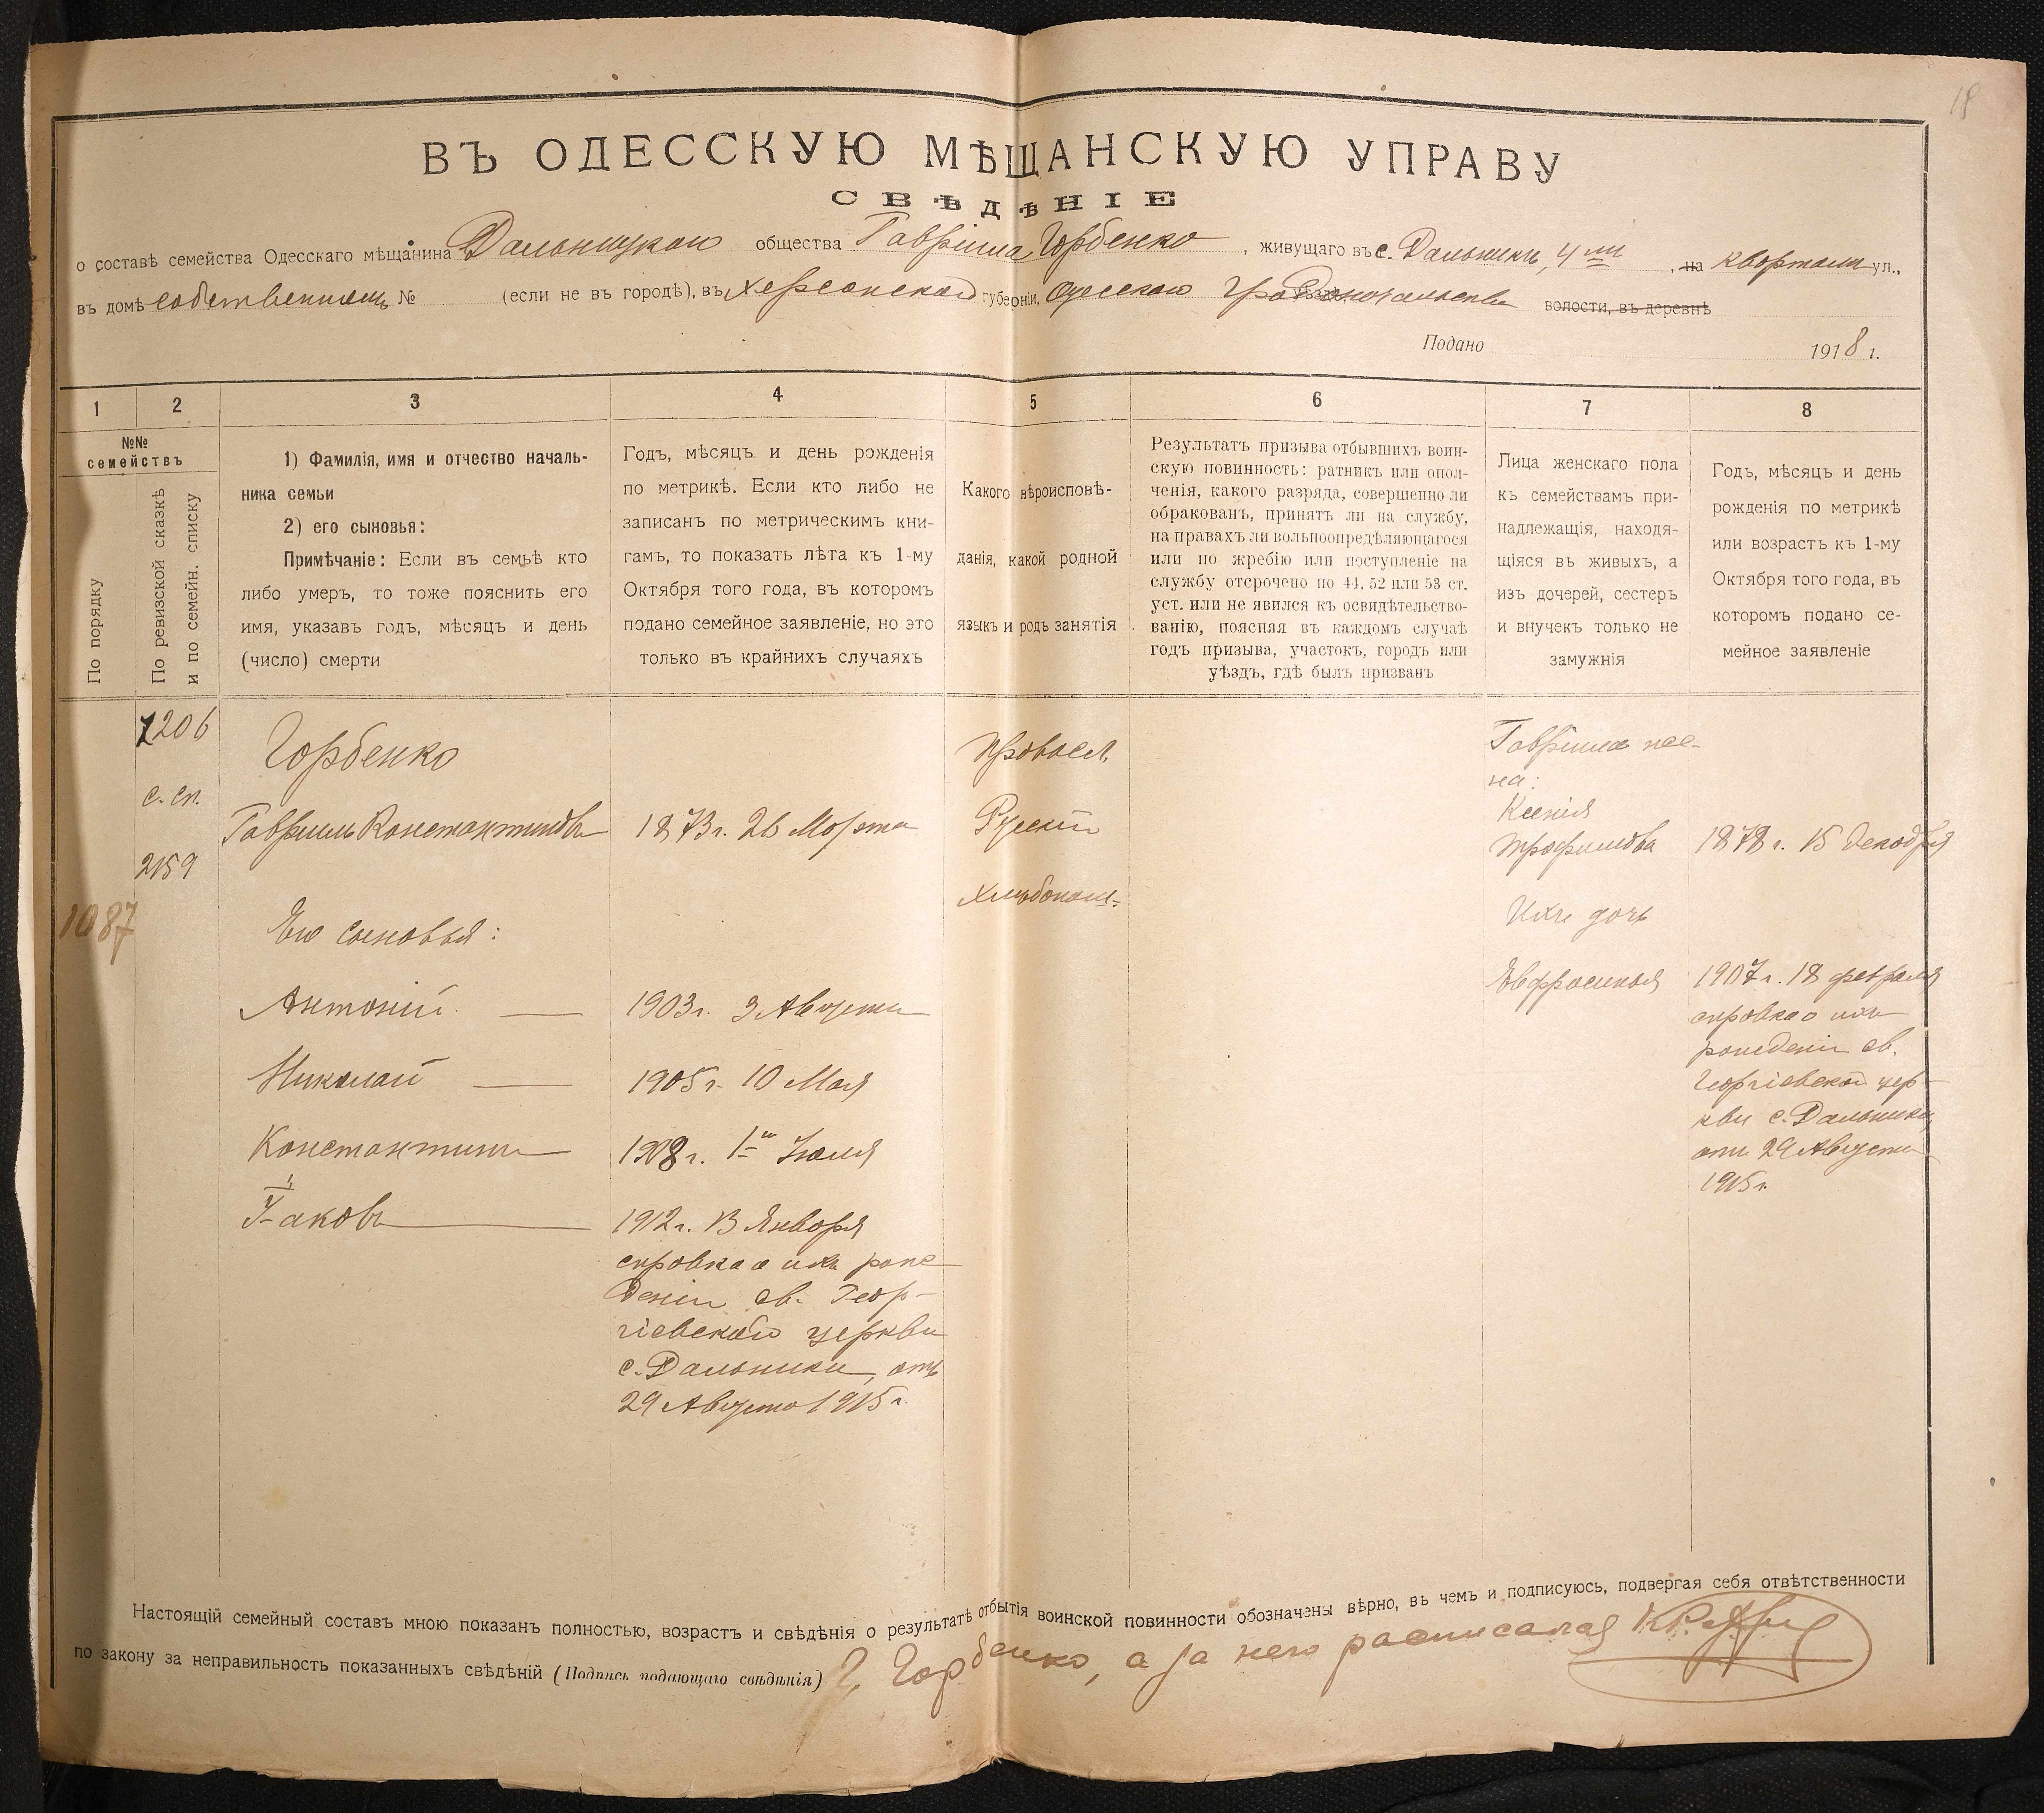 18
ВЪ ОДЕССКУЮ МѢЩАНСКУЮ УПРАВУ
СВѢДѢНІЕ
о составѣ семейства Одесскаго мѣщанина Дальницкаго общества Гавріила Горбенко, живущаго въ с. Дальникъ, 4мъ, на кварталѣ ул.,
въ домѣ собственномъ № (если не въ городѣ), въ Херсонской губерніи, Одесскаго Градоначальства волости, въ деревнѣ
Подано 1918 г.
1 2 3 4 5 6 7 8
№№
семействъ
По порядку
По ревизской сказкѣ
и по семейн. списку
1) Фамилія, имя и отчество началь-
ника семьи
2) его сыновья:
Примѣчаніе: Если въ семьѣ кто
либо умеръ, то тоже пояснить его
имя, указавъ годъ, мѣсяцъ и день
(число) смерти
Годъ, мѣсяцъ и день рожденія
по метрикѣ. Если кто либо не
записанъ по метрическимъ кни-
гамъ, то показать лѣта къ 1-му
Октября того года, въ которомъ
подано семейное заявленіе, но это
только въ крайнихъ случаяхъ
Какого вѣроисповѣ-
данія, какой родной
языкъ и родъ занятія
Результатъ призыва отбывшихъ воин-
скую повинность: ратникъ или опол-
ченія, какого разряда, совершенно ли
обракованъ, принятъ ли на службу,
на правахъ ли вольноопредѣляющагося
или по жребію или поступленіе на
службу отсрочено по 44, 52 или 53 ст.
уст. или не явился къ освидѣтельство-
ванію, поясняя въ каждомъ случаѣ
годъ призыва, участокъ, городъ или
уѣздъ, гдѣ былъ призванъ
Лица женскаго пола
къ семействамъ при-
надлежащія, находя-
щіяся въ живыхъ, а
изъ дочерей, сестеръ
и внучекъ только не
замужнія
Годъ, мѣсяцъ и день
рожденія по метрикѣ
или возрастъ къ 1-му
Октября того года, въ
которомъ подано се-
мейное заявленіе
1087
1206
с. сп.
2159
Горбенко
Гавріилъ Константиновъ
Его сыновья:
Антоній —
Николай —
Константинъ
Іаковъ
1873 г. 26 Марта
1903 г. 3 Августа
1905 г. 10 Мая
1908 г. 1го Іюля
1912 г. 13 Января
справка о ихъ рож
деніи св. Геор-
гіевской церкви
с. Дальника, отъ
29 Августа 1915 г.
Правосл.
Русскій
Хлѣбопаш.
Гавріила же-
на:
Ксенія
Трофимова
Ихъ дочь
Евфросинья
1878 г. 15 декабря
1907 г. 18 февраля
справка о ихъ
рожденіи св.
Георгіевской цер-
кви с. Дальника,
отъ 29 Августа
1915 г.
Настоящій семейный составъ мною показанъ полностью, возрастъ и свѣдѣнія о результатѣ отбытія воинской повинности обозначены вѣрно, въ чемъ и подписуюсь, подвергая себя отвѣтственности
по закону за неправильность показанныхъ свѣдѣній (Подпись подающаго свѣдѣнія) Г. Горбенко, а за него расписался